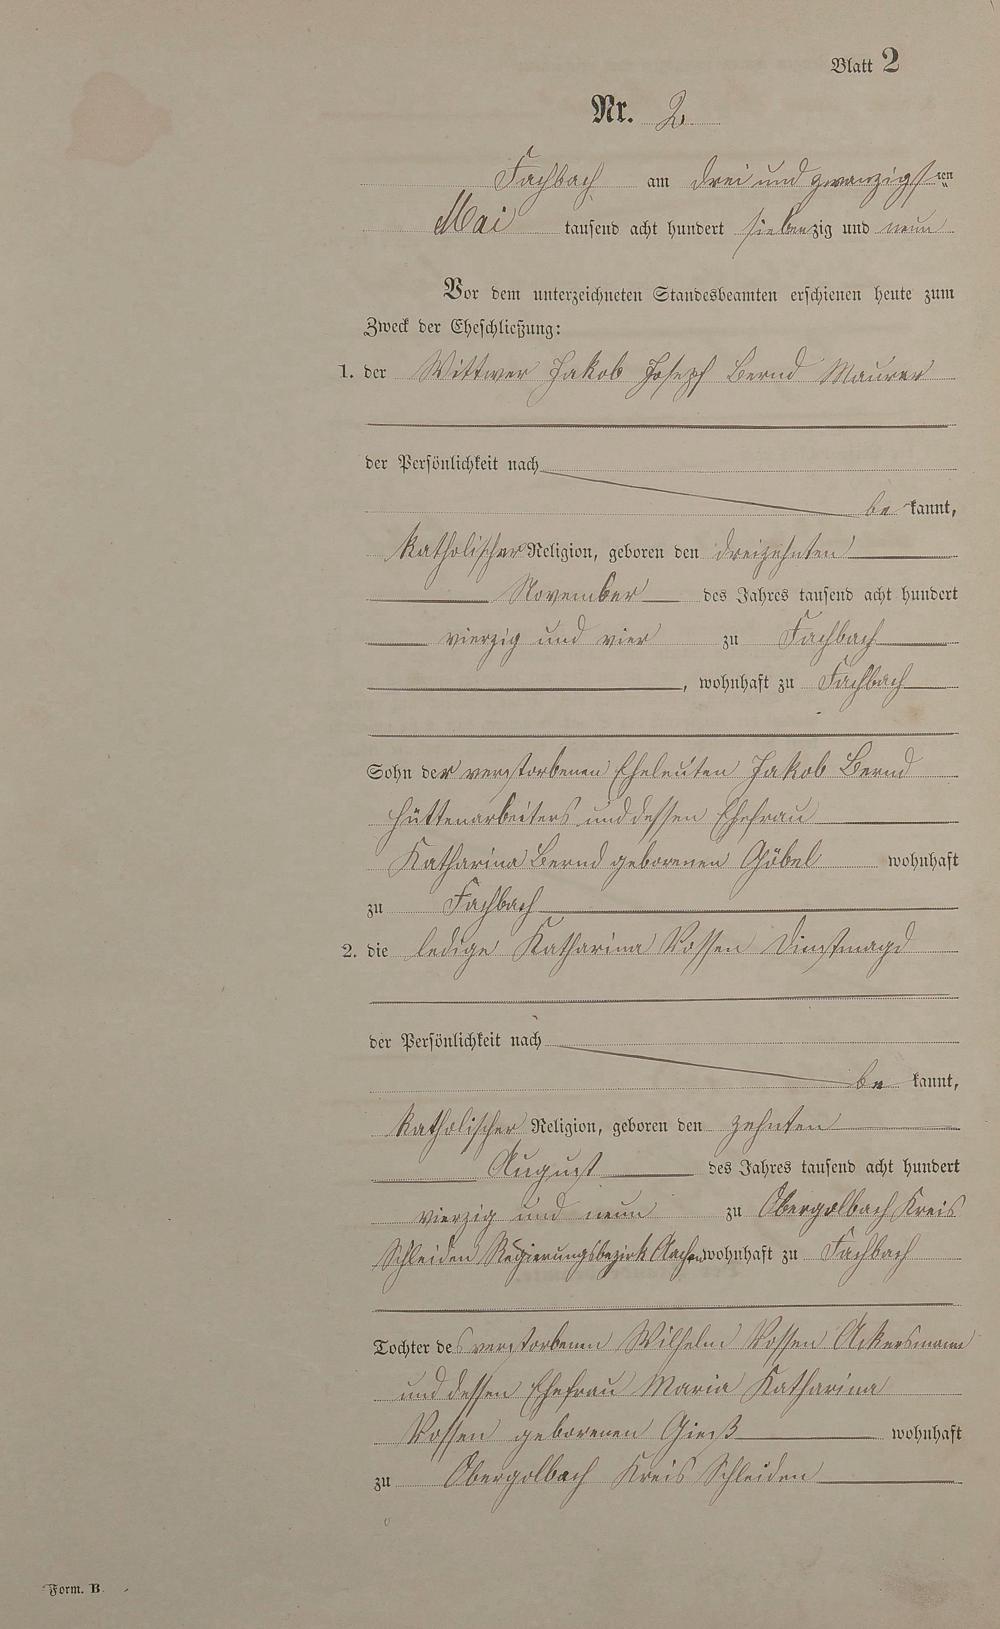 Blatt 2
Nr. 2.
Fachbach am drei und zwanzigsten
Mai tausend acht hundert siebenzig und neun
Vor dem unterzeichneten Standesbeamten erschienen heute zum
Zweck der Eheschließung:
1. der Wittwer Jakob Joseph Bernd Maurer
der Persönlichkeit nach
be kannt,
katholischer Religion, geboren den dreizehnten
November des Jahres tausend acht hundert
vierzig und vier zu Fachbach
, wohnhaft zu Fachbach
Sohn der verstorbenen Eheleuten Jakob Bernd
Hüttenarbeiters und dessen Ehefrau
Katharina Bernd geborenen Göbel wohnhaft
zu Fachbach
2. die ledige Katharina Vossen Dinstmagd
der Persönlichkeit nach
be kannt,
katholischer Religion, geboren den zehnten
August des Jahres tausend acht hundert
vierzig und neun zu Obergolbach Kreis
Schleiden Regierungsbezirk Aachen wohnhaft zu Fachbach
Tochter des verstorbenen Wilhelm Vossen Ackersmann
und dessen Ehefrau Maria Katharina
Vossen geborenen wohnhaft
zu Obergolbach Kreis Schleiden
Form. B.